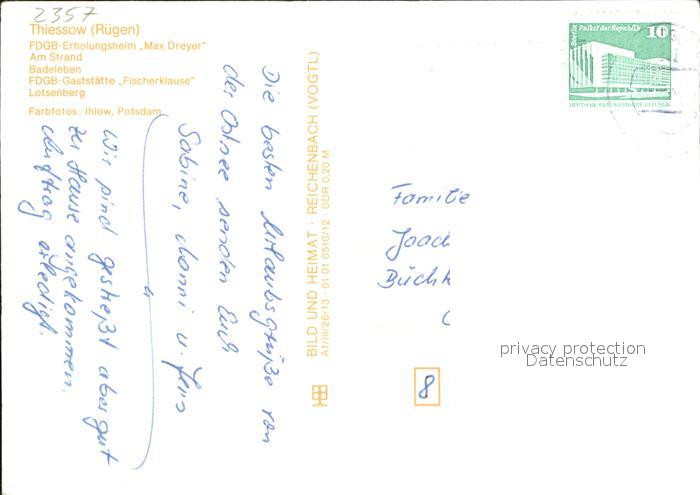 2357
Thiessow (Rügen)
FDGB-Erholungsheim „Max Dreyer"
Am Strand
Badeleben
FDGB-Gaststätte „Fischerklause"
Lotsenberg
Farbfotos: Ihlow, Potsdam
Die besten Urlaubsgrüße von
der Ostsee senden Euch
Sabine, Hanni u. Jens
Wir sind gestreßt aber gut
zu Hause angekommen.
Auftrag erledigt.
BILD UND HEIMAT · REICHENBACH (VOGTL)
A1/III/26/13 · 01 01 0510/12 · DDR 0,20 M
Berlin Palast der Republik 10
DEUTSCHE DEMOKRATISCHE REPUBLIK
Familie
Joach
Büchh
privacy protection
Datenschutz
8